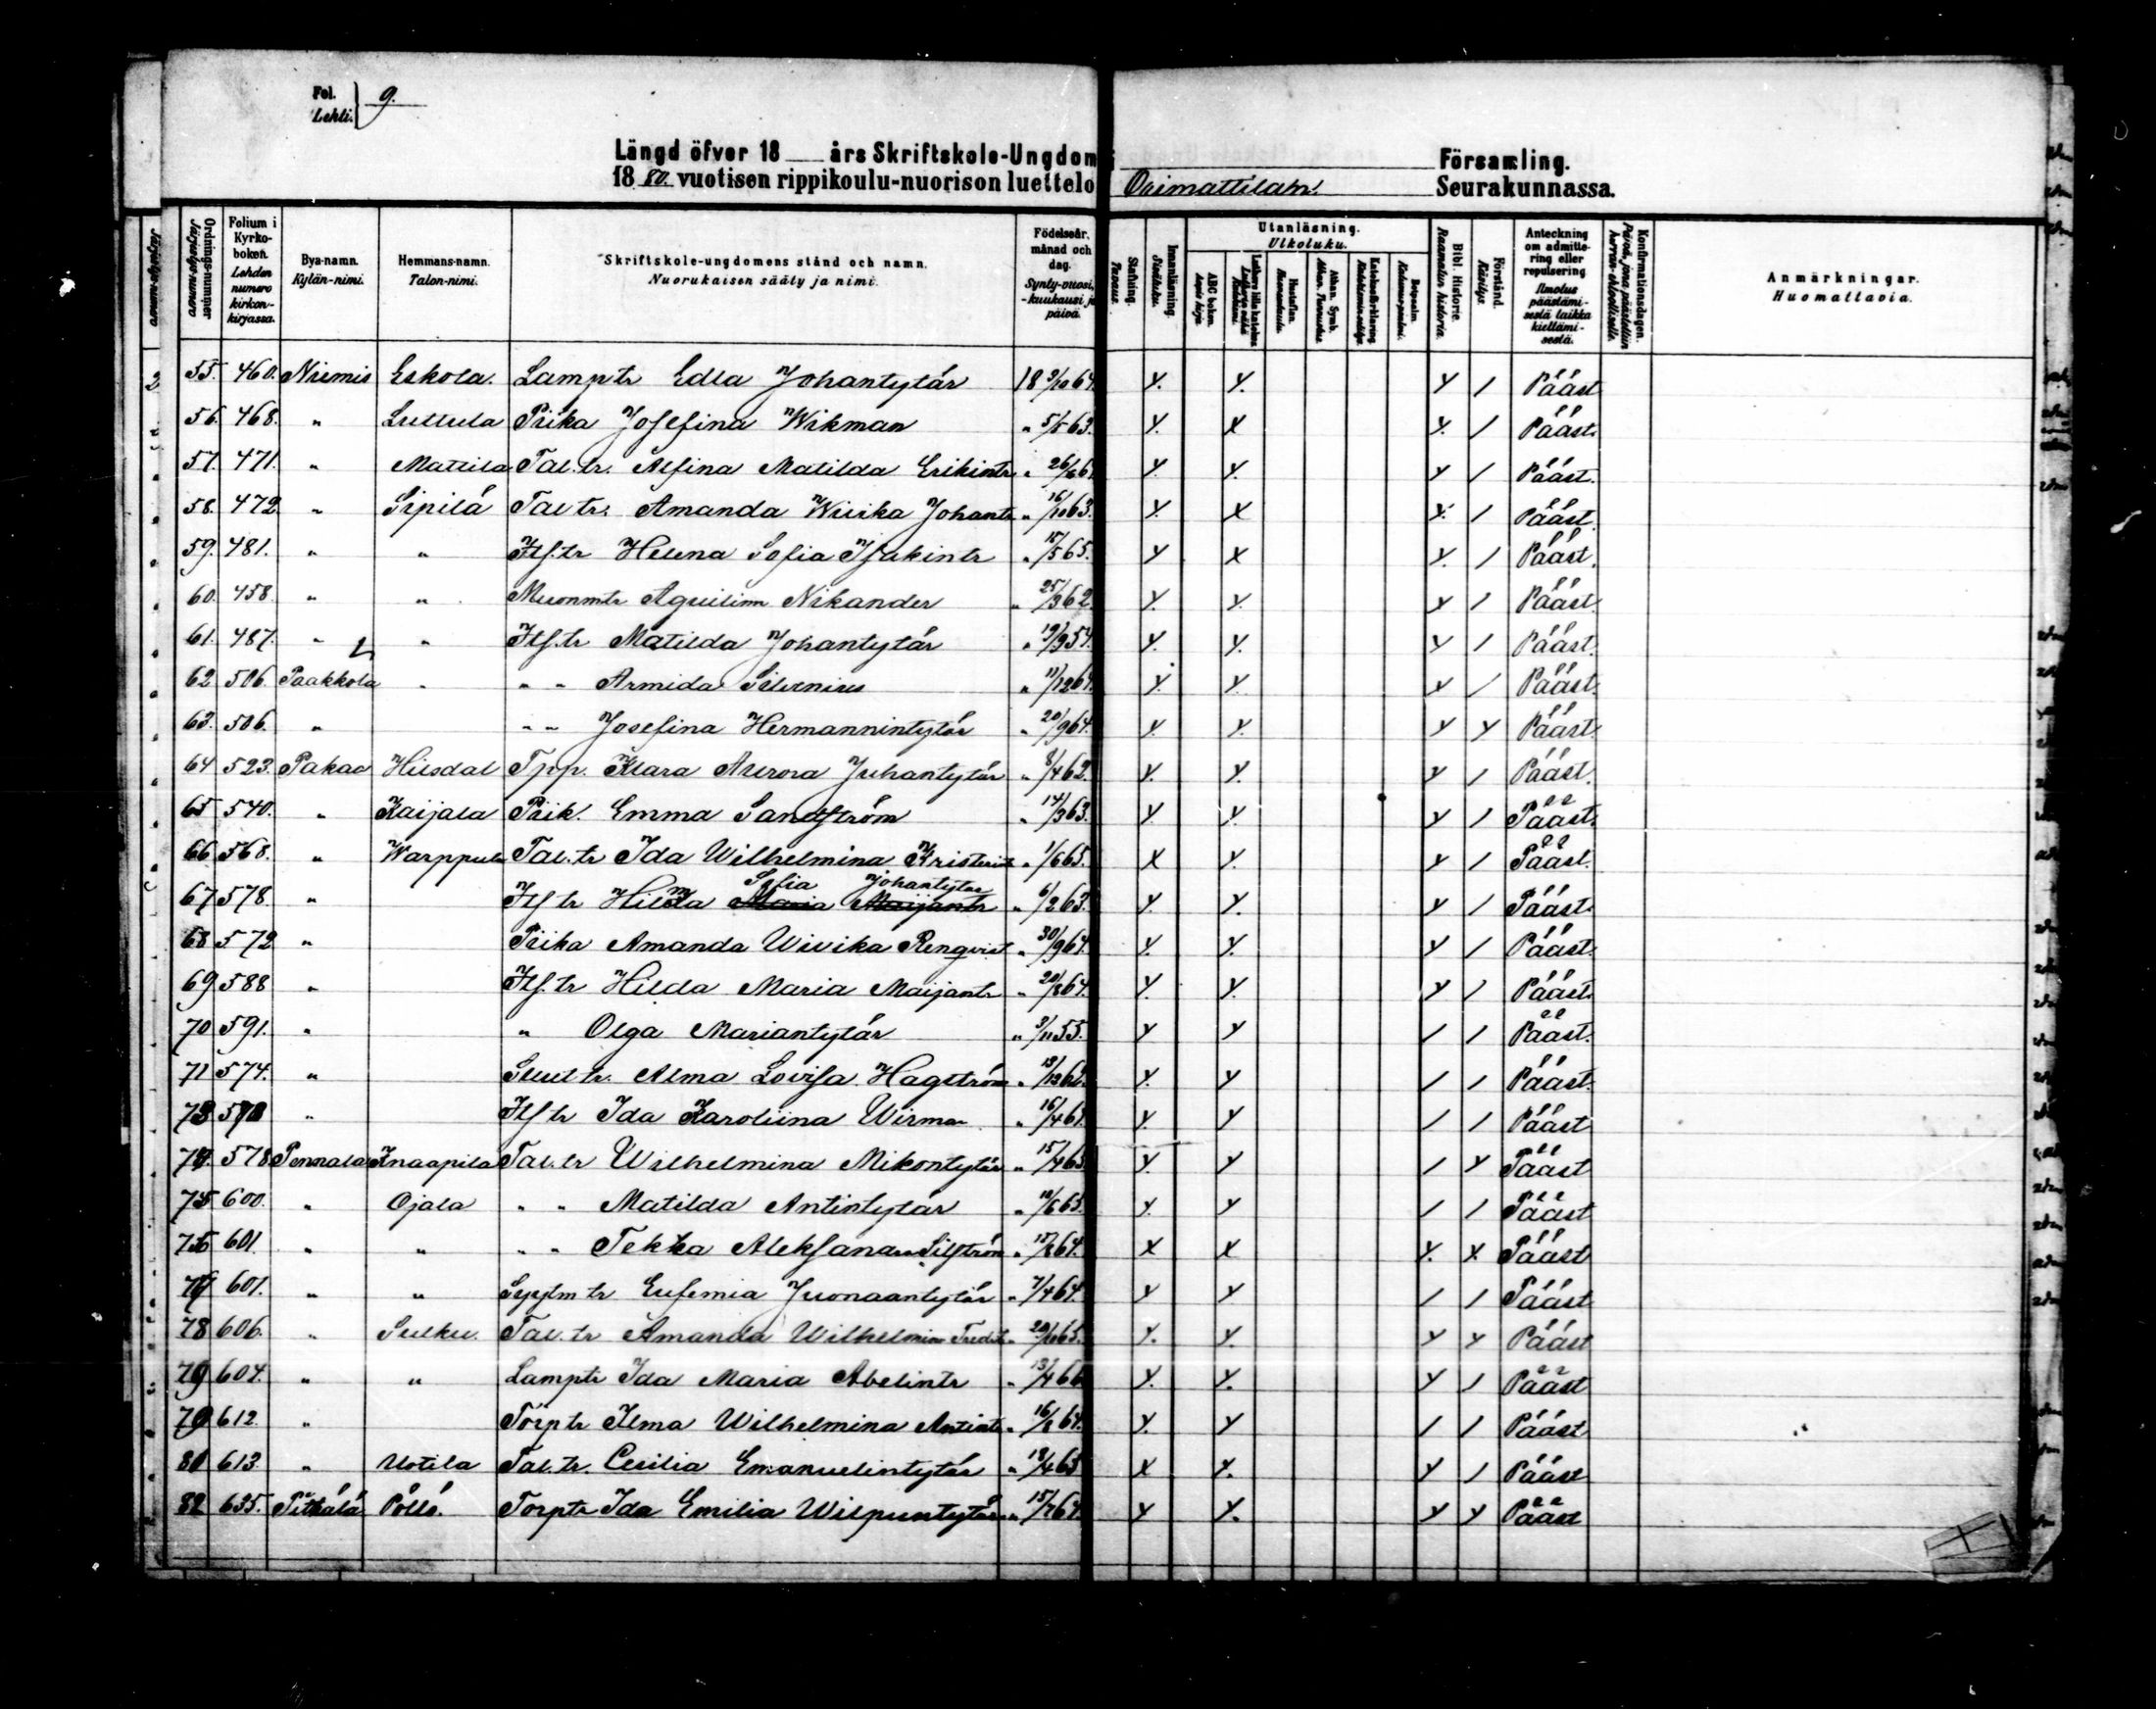 Fol. Lehti. 9.
Längd öfver 18 års Skriftskole-Ungdom i Församling.
1880 vuotisen rippikoulu-nuorison luettelo Orimattilan Seurakunnassa.
Ordnings-nummer Järjestys-numero
Folium i Kyrko-boken. Lehden numero kirkon-kirjassa.
Bya-namn. Kylän-nimi.
Hemmans-namn. Talon-nimi.
Skriftskole-ungdomens stånd och namn. Nuorukaisen sääty ja nimi.
Födelseår, månad och dag. Synty-vuosi, -kuukausi ja päivä.
Stafning. Tavaus.
Innanläsning. Sisäluku.
Utanläsning. Ulkoluku.
ABC boken. Aapis kirja.
Hustaflan. Huoneentaulu.
Athan. Symb. Athan. Tunnustus.
Botpsalm. Katumus-psalmi.
Bibl. Historie. Raamatun historia.
Förstånd. Käsitys.
Anteckning om admittering eller repulsering Ilmotus päästämisestä taikka kieltämisestä.
Konfirmationsdagen. Päivä, jona päästettiin herran-ehtoolliselle.
Anmärkningar. Huomattavia.
55. 460. Niemis Eskola. Lamp tr Edla Johantytär 18 3/10 64. Y. Y. Y / Pääst
56. 468. " Luttula Piika Josefina Wikman " 5/5 63. Y. X Y. / Pääst.
57. 471. " Mattila Tal. tr. Alfina Matilda Erikintr " 26/6 64. Y. Y. Y / Pääst.
58. 472 " Sipilä Tal tr. Amanda Wiika Johantr " 16/10 63. Y. X Y. / Pääst.
59. 481. " " Its. tr Helena Sofia Isakintr " 15/5 65. Y X Y. / Pääst.
60. 458. " " Muonmtr Aguilina Nikander " 25/3 62. Y. Y. Y / Pääst.
61. 487. " " Its. tr Matilda Johantytär " 19/9 54. Y. Y. Y / Pääst.
62 506. Paakkola " " " Armida Silvenius " 11/12 64. Y. Y. Y / Pääst.
63. 506. " " " Josefina Hermannintytär " 20/9 64. Y. Y. Y Y Pääst.
64 523. Pakaa Hilsdal Tpp. Klara Aurora Juhantytär " 8/4 62. Y. Y. Y / Pääst.
65 540. " Kaijala Piik. Emma Sandström " 14/3 63. Y. Y. Y / Pääst.
66 568. " Warppula Tal. tr Ida Wilhelmina Kristerin " 1/6 65. X Y. Y / Pääst.
Sofia Johantytär
67 578. " Its tr Hilma Maria Maijantr " 6/2 63. Y. Y. Y / Pääst.
68 572 " Piika Amanda Wivika Renqvist " 30/9 64. Y. Y. Y / Pääst.
69 588 " Its. tr Hilda Maria Maijantr " 20/8 64. Y. Y. Y / Pääst.
70 591. " " Olga Mariantytär " 3/11 55. Y Y / / Pääst.
71 574. " tr. Alma Lovisa Hagström " 13/12 62. Y. Y / / Pääst.
73 " Its tr Ida Karoliina Wirman " 16/4 61. Y. Y / / Pääst
74. 578 Pennala Knaapila Tal. tr Wilhelmina Mikontytär " 15/4 63 Y. Y / Y Pääst
75 600. " Ojala " " Matilda Antintytär " /6 63. Y. Y / / Pääst
76 601. " " " " Tekka Aleksandra " 15/8 64. X X Y. X Pääst
77 601. " " tr Eufemia Juonaantytär " 7/4 64. Y Y / / Pääst
78 606. " Sulku. Tal. tr Amanda Wilhelmina " 20/10 65. Y. Y. Y Y Pääst
79 604. " " Lamptr Ida Maria Abelintr " 13/4 66 Y. Y. Y / Pääst
79 612. " Torp tr Ilma Wilhelmina Antintr " 16/8 64. Y. Y / / Pääst
80 613. " Uotila Tal. tr. Cecilia Emanuelintytär " 18/4 63 X Y. Y / Pääst
82 635. Pitkälä Pöllö. Torptr Ida Emilia Wilpuntytär " 15/7 64. Y Y. Y Y Pääst